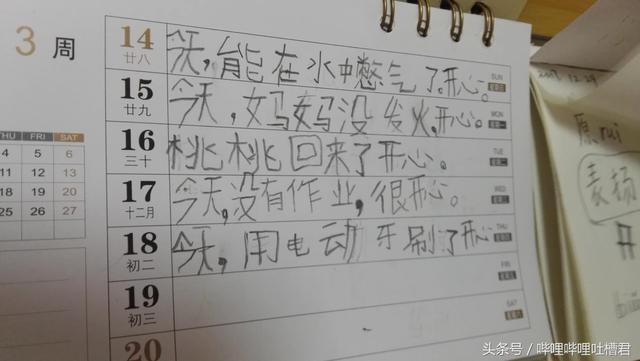 3 周
14 廿八 今天,能在水中憋气了。开心。 SUN
15 廿九 今天,妈妈没发火,开心。 MON 星期一
16 三十 桃桃回来了开心。 TUE 星期二
17 十二月 今天,没有作业,很开心。 WED 星期三
18 初二 今天,用电动牙刷了开心 THU 星期四
19 初三 FRI 星期五
20 SAT 星期六
THU FRI SAT
4 5 6
11 12 13
18 19 20
25 26 27
2017.12.29
原 rui
表扬
开
头条号 / 哔哩哔哩吐槽君